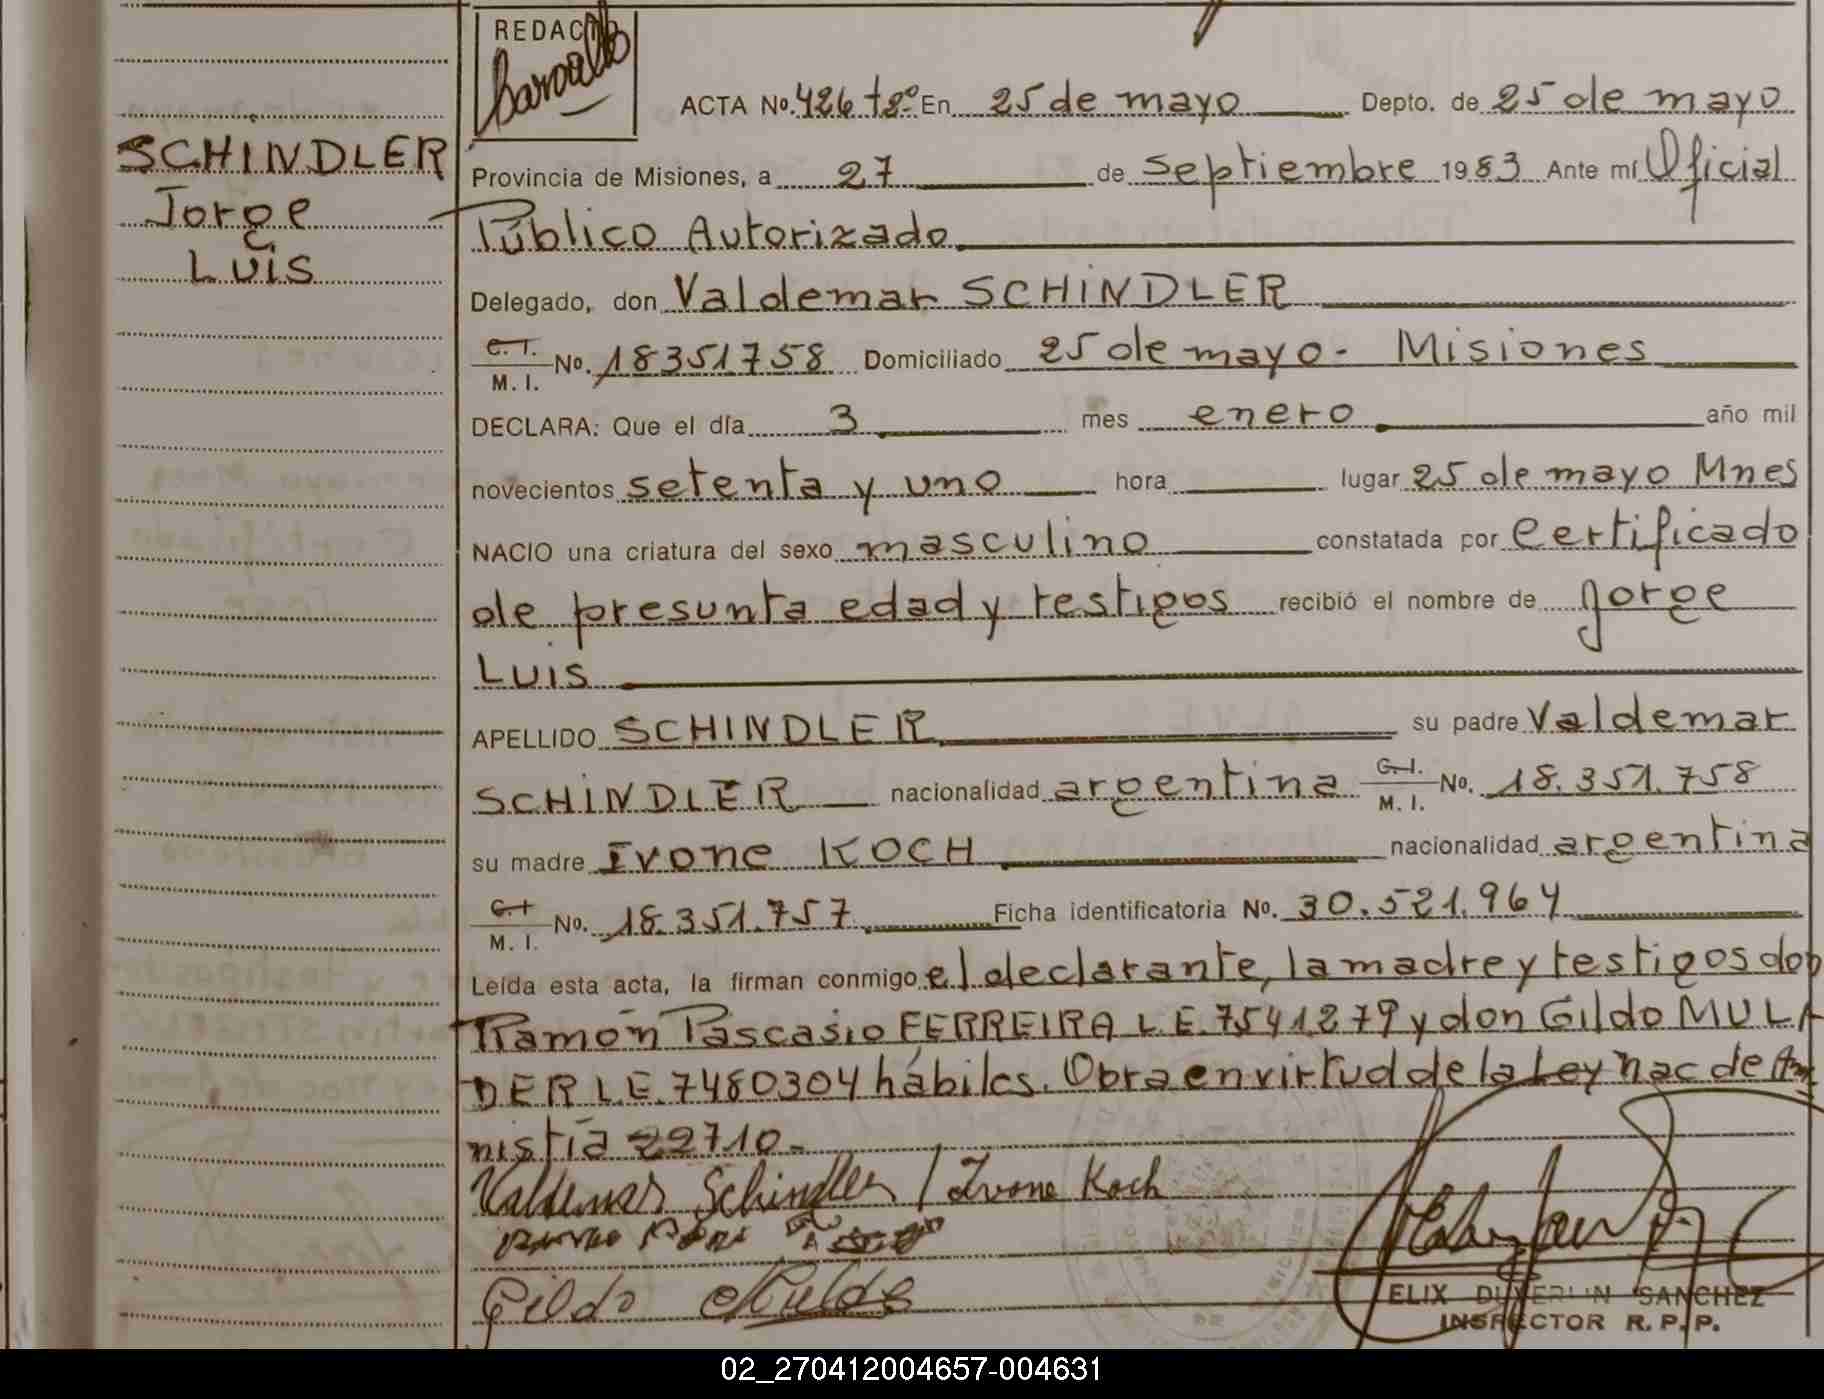 REDACTO
ACTA No. 426 tº2º En 25 de mayo Depto. de 25 de mayo
SCHINDLER
Jorge
Luis
Provincia de Misiones, a 27 de septiembre 1983 Ante mí Oficial
Público Autorizado.
Delegado, don Valdemar SCHINDLER
C. I.
M. I. No. 18351758 Domiciliado 25 de mayo - Misiones
DECLARA: Que el día 3 mes enero año mil
novecientos setenta y uno hora lugar 25 de mayo Mnes
NACIO una criatura del sexo masculino constatada por Certificado
de presunta edad y testigos recibió el nombre de Jorge
Luis
APELLIDO SCHINDLER su padre Valdemar
SCHINDLER nacionalidad argentina C. I. M. I. No. 18.351.758
su madre Ivone KOCH nacionalidad argentina
C. I.
M. I. No. 18.351.757 Ficha identificatoria No. 30.521.964
Leída esta acta, la firman conmigo el declarante, la madre y testigos don
Ramón Pascasio FERREIRA L.E. 7541279 y don Gildo MULA
DER L.E. 7480304 hábiles. Obra en virtud de la Ley nac de Am
nistía 22710.-
Valdemar Schindler / Ivone Koch
Gildo Mulde
SANCHEZ
INSPECTOR R. P. P.
02_270412004657-004631